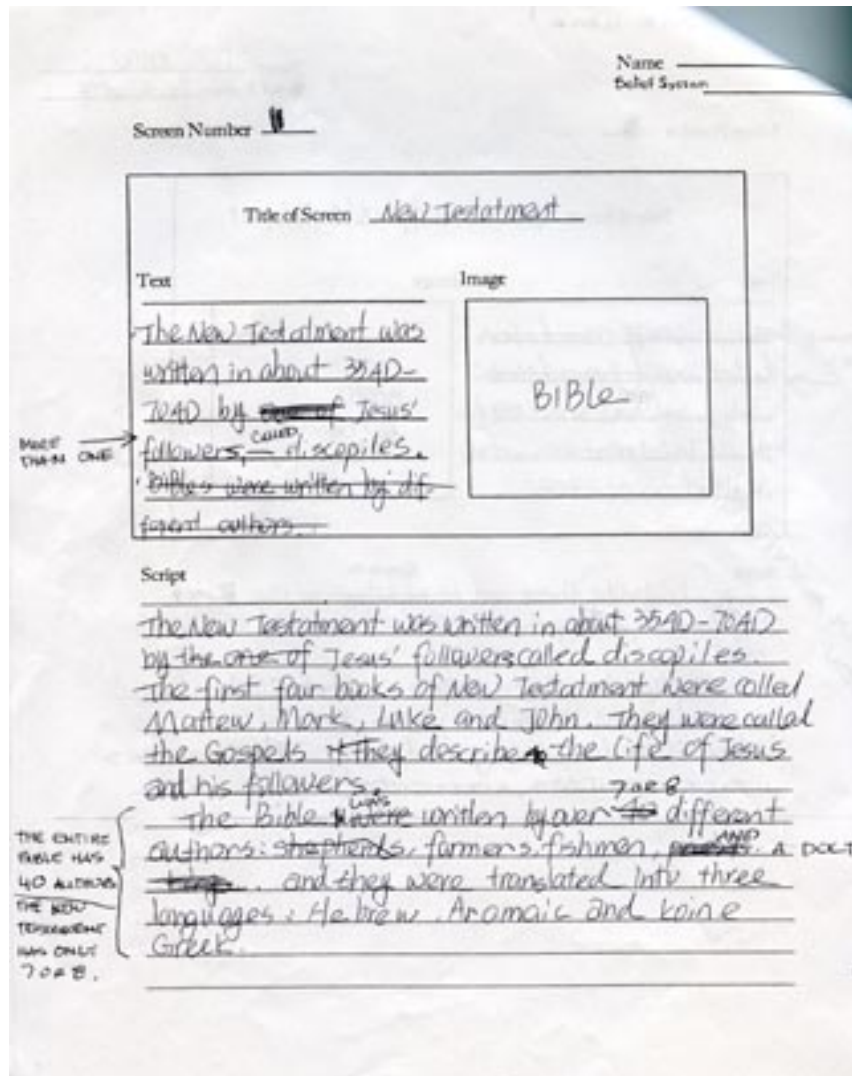 Name
Belief System
Screen Number
Title of Screen New Testatment
Text
Image
The New Testatment was
written in about 35AD-
70AD by one of Jesus'
MORE THAN ONE
followers, CALLED discopiles.
Bibles were written by dif-
ferent authors.
BIBLe
Script
The New Testatment was written in about 35AD-70AD
by the one of Jesus' followers called discopiles.
The first four books of New Testatment were called
Mattew, Mark, Luke and John. They were called
the Gospels They describe the life of Jesus
and his followers.
7 OR 8
The Bible WAS were written by over 40 different
authors: shepherds, farmers, fishmen, AND A DOCT
and they were translated into three
languages: Hebrew, Aromaic and koine
Greek.
THE ENTIRE
BIBLE HAS
40 AUTHORS
THE NEW
TESTAMENT
HAS ONLY
7 OR 8.